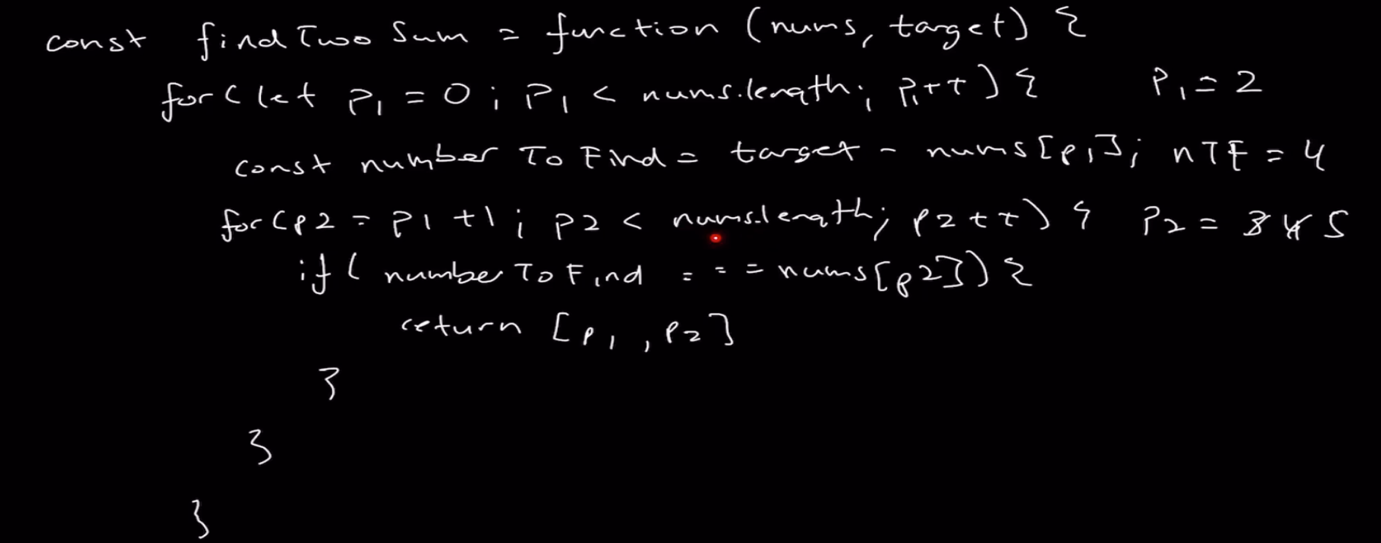 const findTwoSum = function (nums, target) {
for(let p1 = 0; p1 < nums.length; p1++){ p1 = 2
const numberToFind = target - nums[p1]; nTF = 4
for(p2 = p1 +1; p2 < nums.length; p2++){ p2 = 3 4 5
if(numberToFind === nums[p2]){
return [p1, p2]
}
}
}